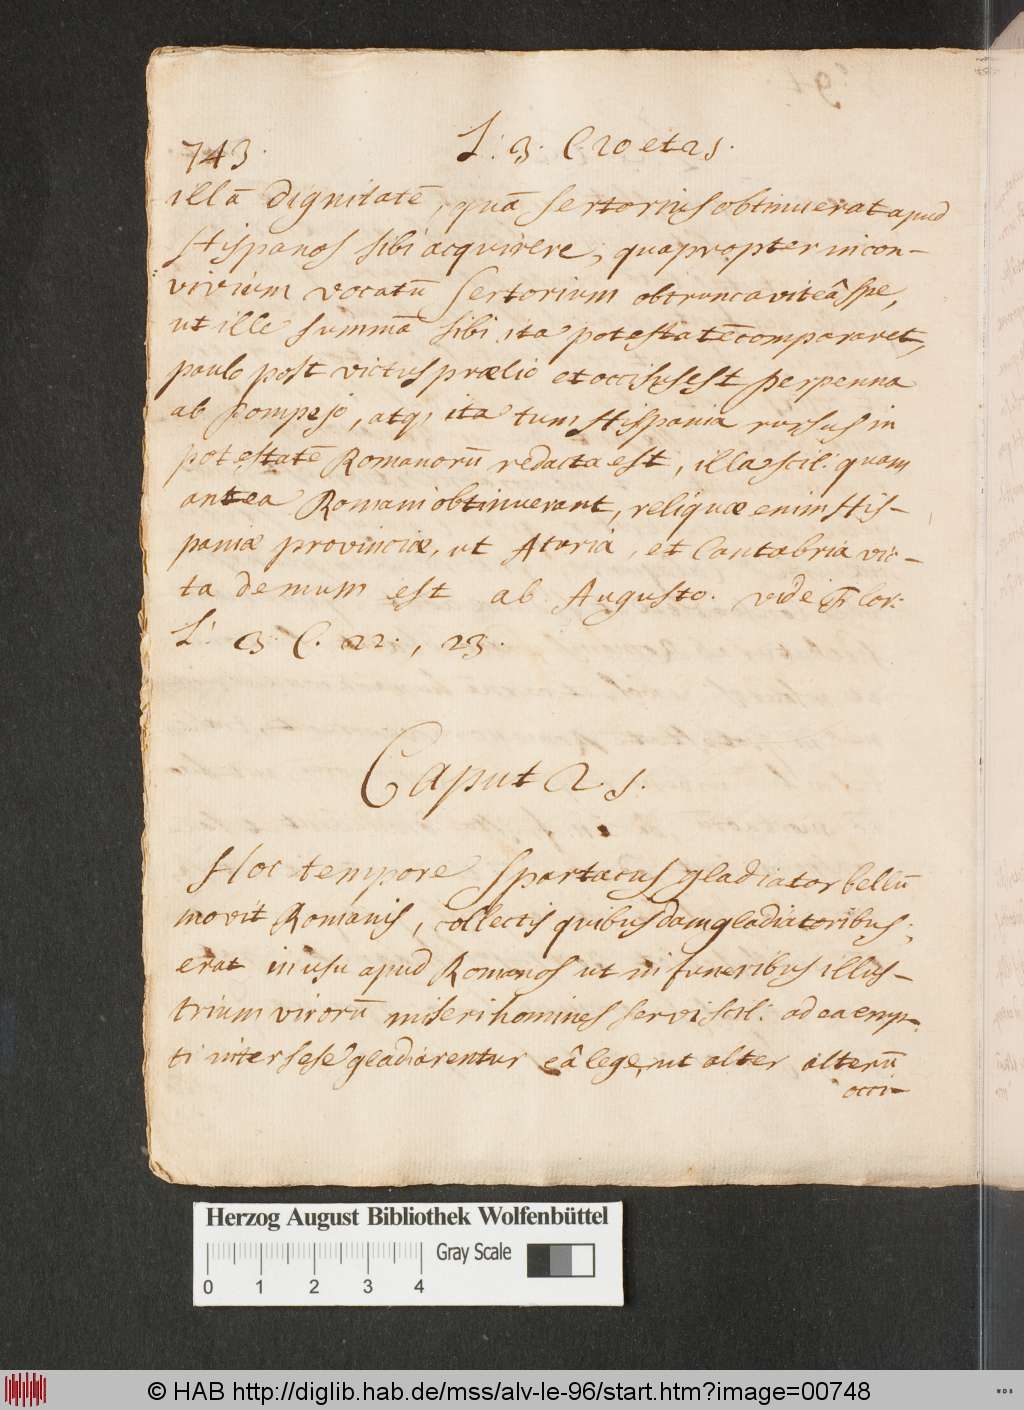 743.
L: 3. C. 20 et 21.
illā dignitatē, quā Sertorius obtinuerat apud
Hispanos sibi acquirere, quapropter in con-
vivium vocatū Sertorium obtruncavit eâ spe,
ut ille summā sibi ita potestatē compararet,
paulo post victus prælio et occisus est Perpenna
ab Pompejo, atq, ita tum Hispania rursus in
potestatē Romanorū redacta est, illa scil: quam
antea Romani obtinuerant, reliquæ enim His-
paniæ provinciæ, ut Aturia, et Cantabria vic-
ta demum est ab Augusto. vide Flor:
L: 3. C. 22., 23.
Caput 21.
Hoc tempore Spartacus gladiator bellū
movit Romanis, collectis quibusdam gladiatoribus;
erat in usu apud Romanos ut in funeribus illus-
trium virorū miseri homines servi scil: ad ea emp-
ti inter sese gladiarentur eâ lege, ut alter alterū
occi-
Herzog August Bibliothek Wolfenbüttel
Gray Scale
0 1 2 3 4
© HAB http://diglib.hab.de/mss/alv-le-96/start.htm?image=00748